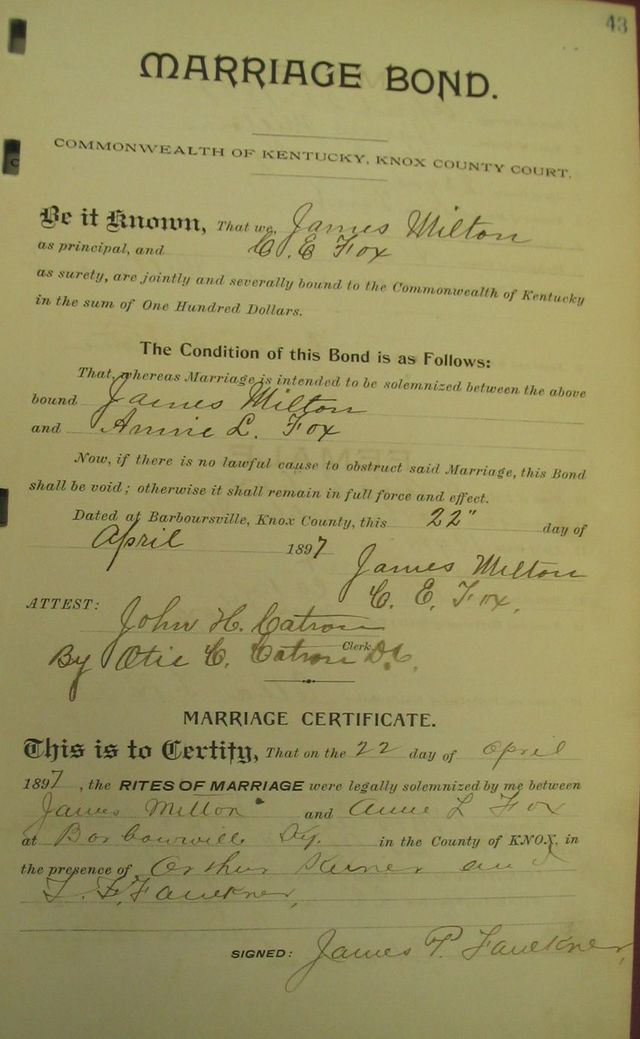 43
MARRIAGE BOND.
COMMONWEALTH OF KENTUCKY, KNOX COUNTY COURT.
Be it Known, That we, James Milton
as principal, and C. E Fox
as surety, are jointly and severally bound to the Commonwealth of Kentucky
in the sum of One Hundred Dollars.
The Condition of this Bond is as Follows:
That, whereas Marriage is intended to be solemnized between the above
bound James Milton
and Annie L. Fox
Now, if there is no lawful cause to obstruct said Marriage, this Bond
shall be void; otherwise it shall remain in full force and effect.
Dated at Barboursville, Knox County, this 22" day of
April 1897
James Milton
C. E. Fox.
ATTEST:
John H. Catron
Clerk
By Otie C. Catron D.C.
MARRIAGE CERTIFICATE.
This is to Certify, That on the 22 day of April
1897, the RITES OF MARRIAGE were legally solemnized by me between
James Milton and Annie L Fox
at Barbourville Ky. in the County of KNOX, in
the presence of Arthur and
Faulkner,
SIGNED: James P. Faulkner,